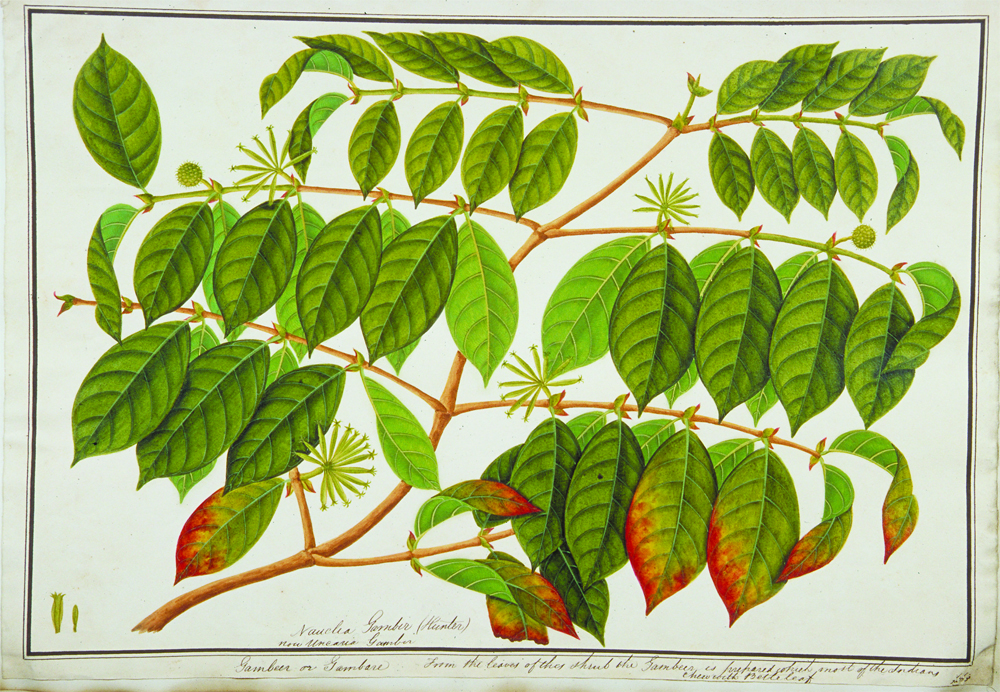 Nauclea Gambir (Hunter)
now Uncaria Gambir
Gambeer or Gambare From the leaves of this shrub the Gambeer is prepared which most of the Indians
chew with Betle leaf